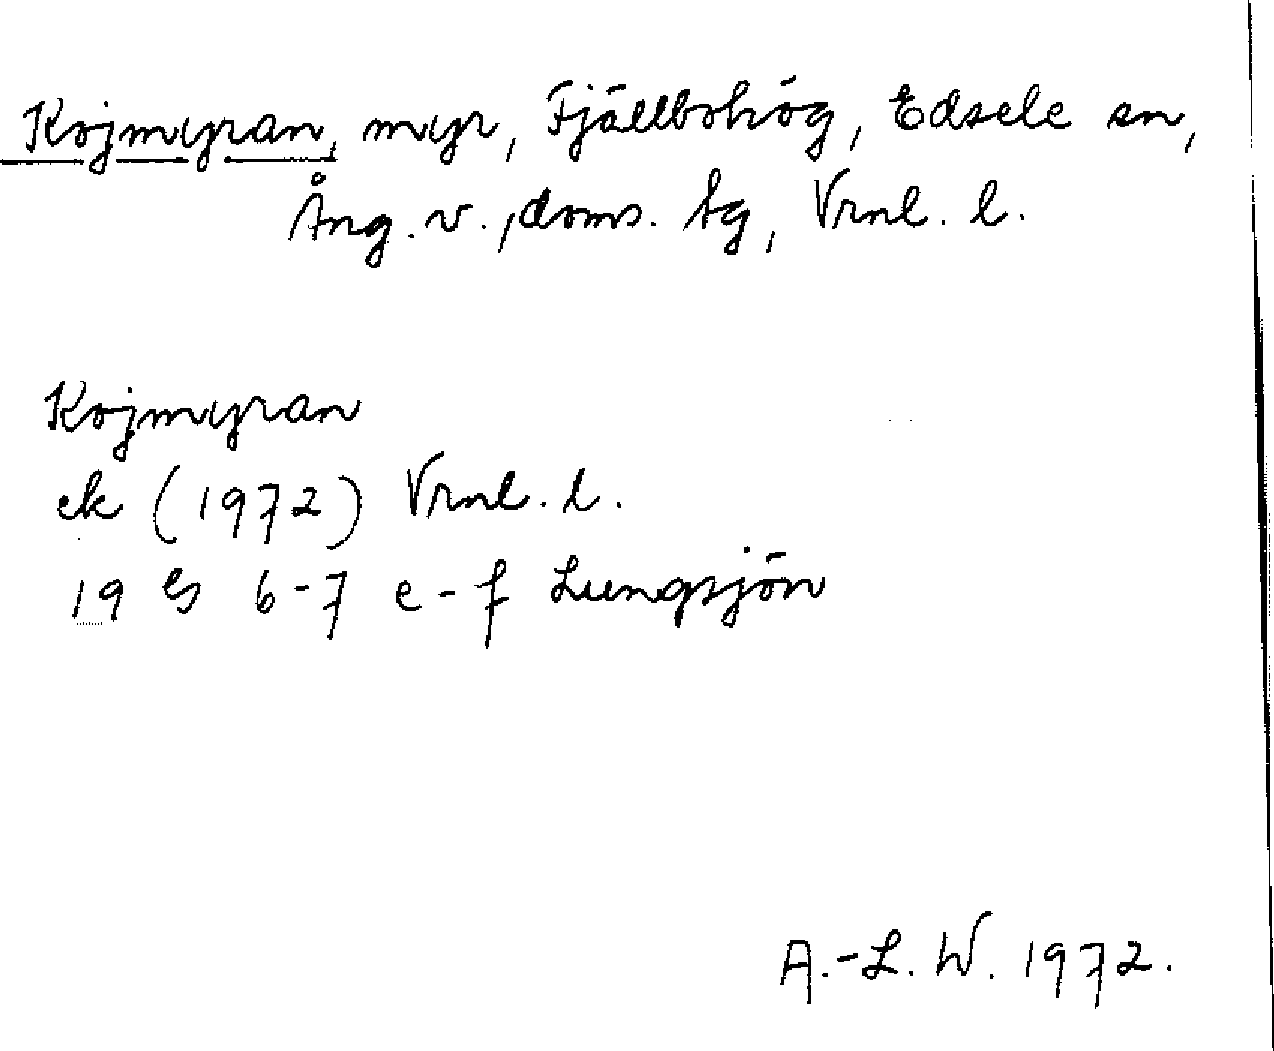 Kojmyran, myr, Fjällbohög, Edsele sn,
Ång. v., doms. tg, Vrnl. l.
Kojmyran
ek (1972) Vrnl. l.
19 G 6-7 e-f Lungsjön
A.-L. W. 1972.